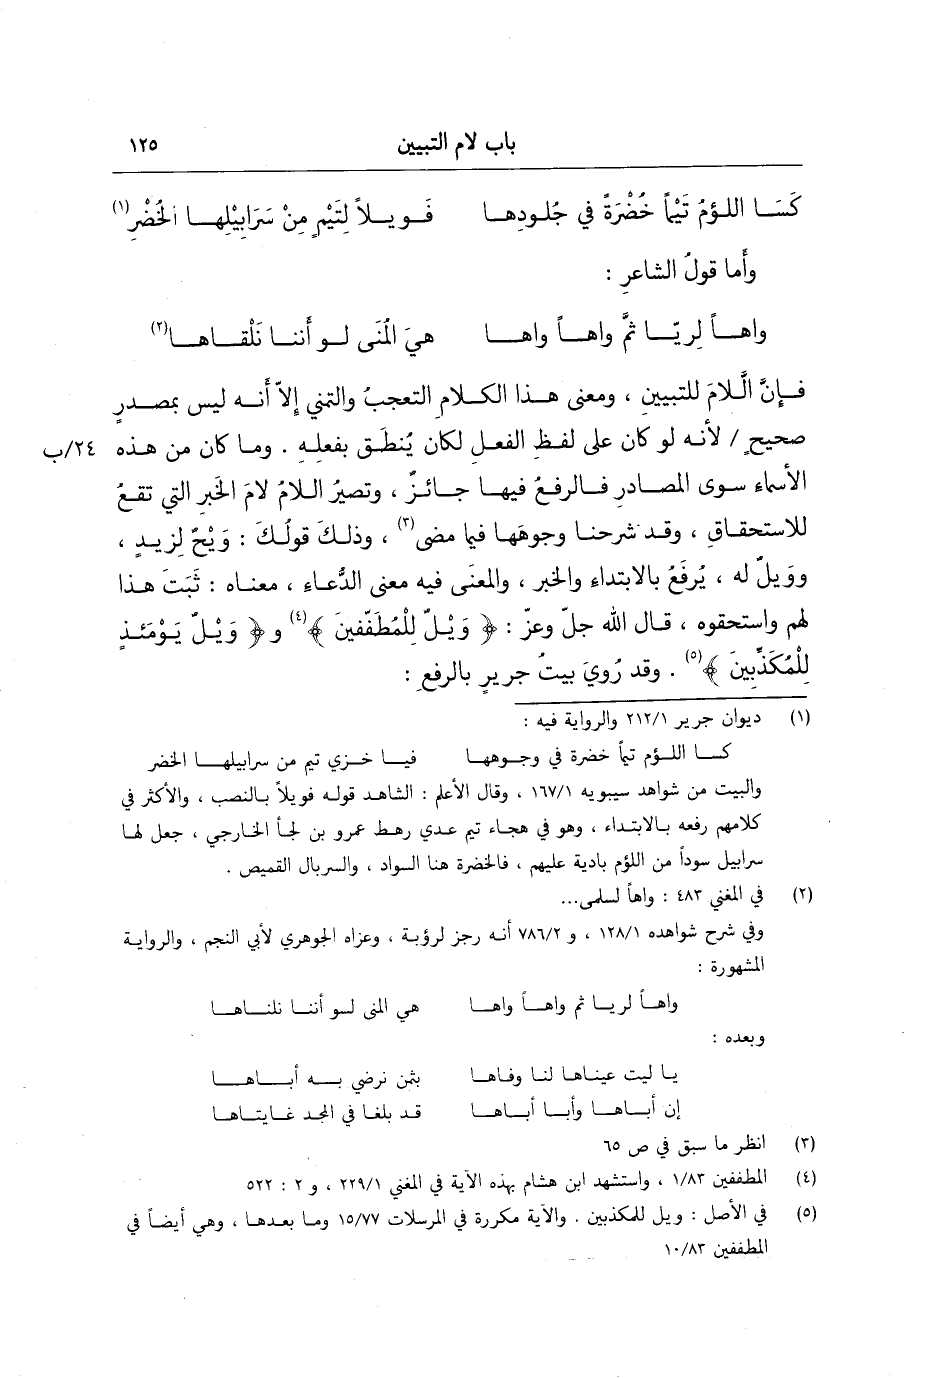 باب لام التبيين ١٢٥
كَسَا اللؤمُ تَيْماً خُضْرَةً في جُلودِها فَويلاً لتَيْمٍ مِنْ سَرَابِيْلِها الخُضْرِ(١)
وأَما قولُ الشاعرِ :
واهاً لِريّا ثمَّ واهاً واها هيَ الُمنَى لو أَننا نَلْقاها(٢)
فإنَّ الَّلامَ للتبيينِ ، ومعنى هذا الكلامِ التعجبُ والتمني إلاّ أَنه ليس بمصدرٍ
صحيحٍ / لأنه لو كان على لفظِ الفعلِ لكان يُنطَق بفعلِه . وما كان من هذه ٢٤/ب
الأسماء سوى المصادرِ فالرفعُ فيها جائزٌ ، وتصيرُ اللامُ لامَ الخبرِ التي تقعُ
للاستحقاقِ ، وقد شرحنا وجوهَها فيما مضى(٣) ، وذلكَ قولُكَ : وَيْحٌ لزيدٍ ،
وويلٌ له ، يُرفَعُ بالابتداء والخبرِ ، والمعَنى فيه معنى الدُّعاء ، معناه : ثَبَتَ هذا
لهم واستحقوه ، قال الله جلّ وعزّ : ﴿ وَيْلٌ لِلْمُطَفِّفينَ ﴾(٤) و ﴿ وَيْلٌ يَوْمَئذٍ
لِلْمُكَذِّبينَ ﴾(٥) . وقد رُويَ بيتُ جريرٍ بالرفعِ :
(١) ديوان جرير ٢١٢/١ والرواية فيه :
كسا اللؤم تيماً خضرة في وجوهها فيا خزي تيم من سرابيلها الخضر
والبيت من شواهد سيبويه ١٦٧/١ ، وقال الأعلم : الشاهد قوله فويلاً بالنصب ، والأكثر في
كلامهم رفعه بالابتداء ، وهو في هجاء تيم عدي رهط عمرو بن لجأ الخارجي ، جعل لها
سرابيل سوداً من اللؤم بادية عليهم ، فالخضرة هنا السواد ، والسربال القميص .
(٢) في المغني ٤٨٣ : واهاً لسلمى...
وفي شرح شواهده ١٢٨/١ ، و ٧٨٦/٢ أنه رجز لرؤبة ، وعزاه الجوهري لأبي النجم ، والرواية
المشهورة :
واهاً لريا ثم واهاً واها هي المنى لو أننا نلناها
وبعده :
يا ليت عيناها لنا وفاها بثمن نرضي به أباها
إن أباها وأبا أباها قد بلغا في المجد غايتاها
(٣) انظر ما سبق في ص ٦٥
(٤) المطففين ١/٨٣ ، واستشهد ابن هشام بهذه الآية في المغني ٢٢٩/١ ، و ٢ : ٥٢٢
(٥) في الأصل : ويل للمكذبين . والآية مكررة في المرسلات ١٥/٧٧ وما بعدها ، وهي أيضاً في
المطففين ١٠/٨٣